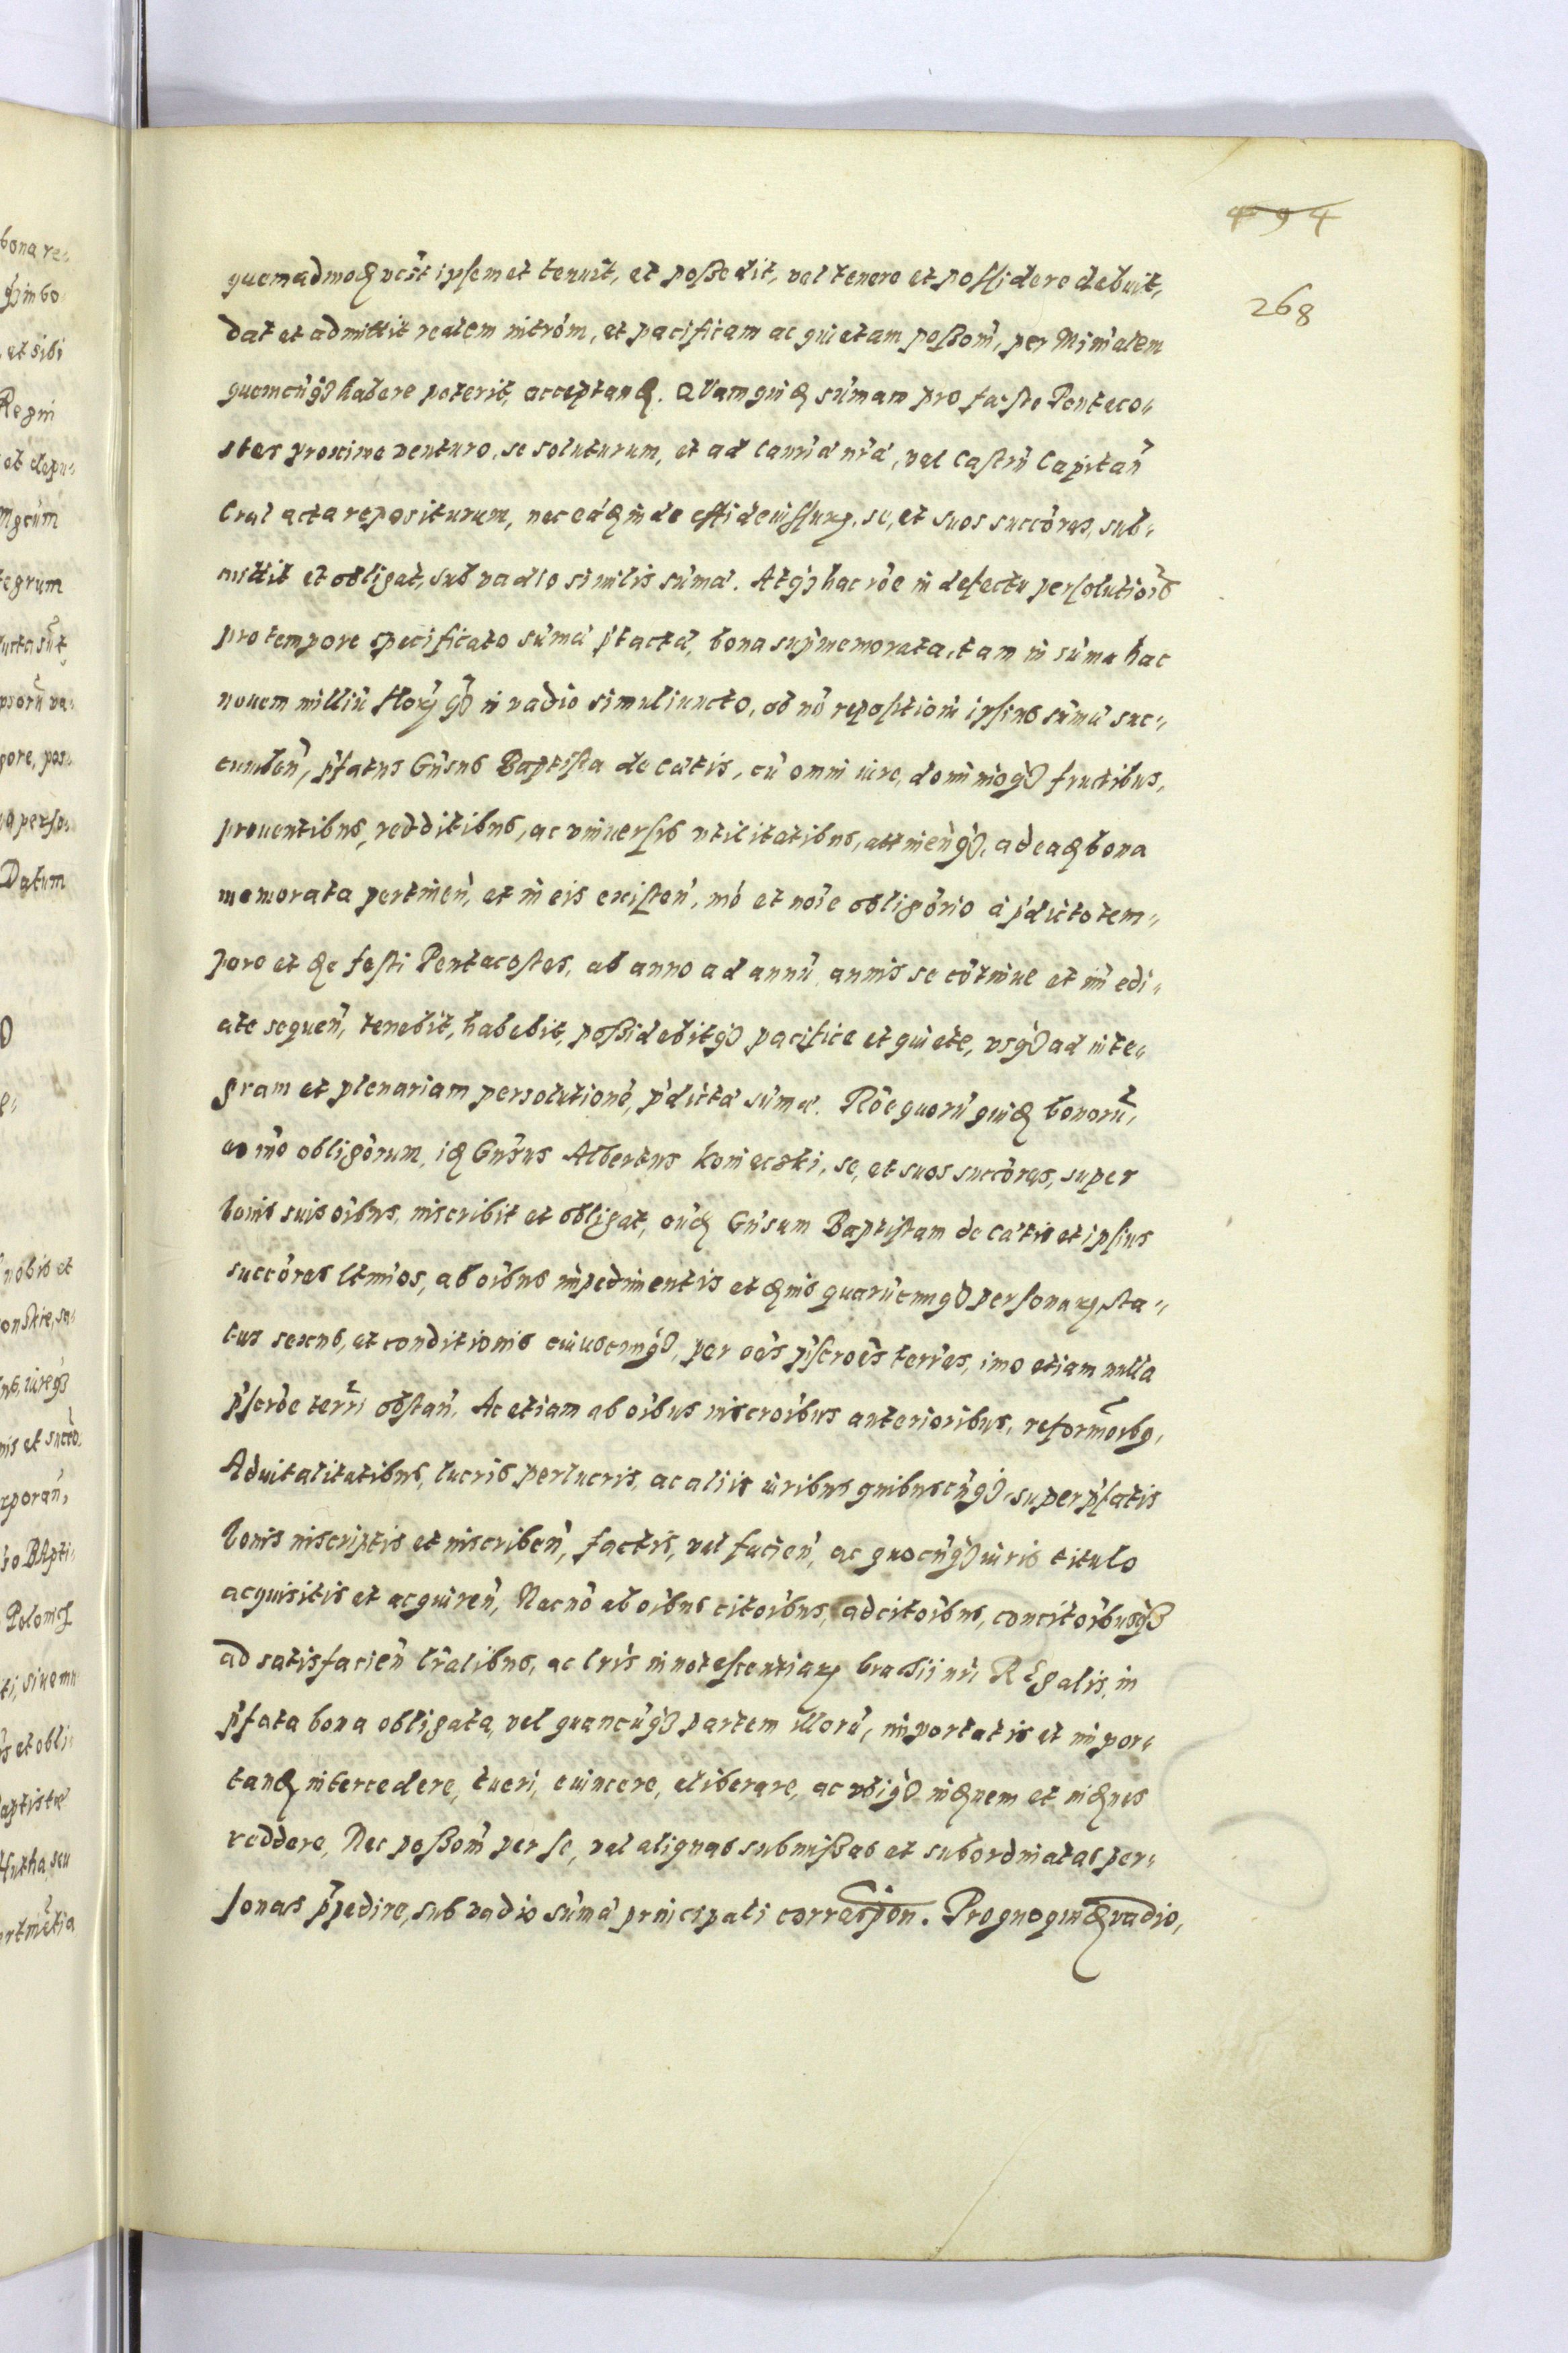 494
268
quemadmodū vest ipsemet tenuit, et possedit, vel tenere et possidere debuit,
dat et admittit realem introm, et pacificam ac quietam possom, per Minralem
quemcunq3 habere poterit, acceptand. Quam quid sumam pro festo Penteco-
stes proxime venturo, se soluturum, et ad Cancria nra, vel Castrn Capitan
Cral acta repositurum, nec eand inde , se, et suos succores, sub-
mittit et obligat, sub vadio similis sumæ. Atq3 hac rōe in defectu persolutiois
pro tempore specificato sumæ ptactæ, bona supmemorata, tam in suma hac
nouem milliū floꝝ qȝ in vadio simul iuncto, ob nō repositioiu ipsius sumæ suc-
cumben, pfatus Gnsus Baptista de Catis, cū omni iure, dominioqȝ fructibus,
prouentibus, redditibus, ac vniuersis vtilitatibus, attinenqȝ, ad ead bona
memorata pertinen, et in eis existen, mo et noie obligorio a pdicto tem-
pore et de festi Pentecostes, ab anno ad annū annis se cotinue et immedi-
ate sequen, tenebit, habebit, possidebitqȝ pacifice et quiete, vsqȝ ad inte-
gram et plenariam persolutione, pdictæ sumæ. Rōe quorū quid bonorū,
eo mo obligorum, id Gnsus Albertus Koniecski, se, et suos succores, super
bonis suis oibus, inscribit et obligat, eud Gnsum Baptistam de Catis et ipsius
succores ltmios, ab oibus impedimentis et dnis quarūcunqȝ personaꝝ, sta-
tus sexus, et conditionis cuiuscunqȝ, per oes pscroes terres, imo etiam nulla
pscrōe terri obstan. Ac etiam ab oibus inscroibus anterioribus, reformoibꝫ,
Aduitalitatibus, lucris perlucris, ac aliis iuribus quibuscūqȝ, super pfatis
bonis inscriptis et inscriben, factis, vel facien, ac quocūqȝ iuris titulo
acquisitis et acquiren, Necnō ab oibus citoibus, adcitoibus, concitoibusqȝ
ad satisfacien lralibus, ac lris innotescentiaꝝ brachii nri Regalis, in
pfata bona obligata, vel quancūqȝ partem illorū, importatis et impor-
tand intercedere, tueri, euincere, eliberare, ac vbiqȝ indnem et indnes
reddere, Nec possom per se, vel aliquas submissas et subordinatas per-
sonas ppedire, sub vadio sumæ principali correspon. Pro quoquid vadio,